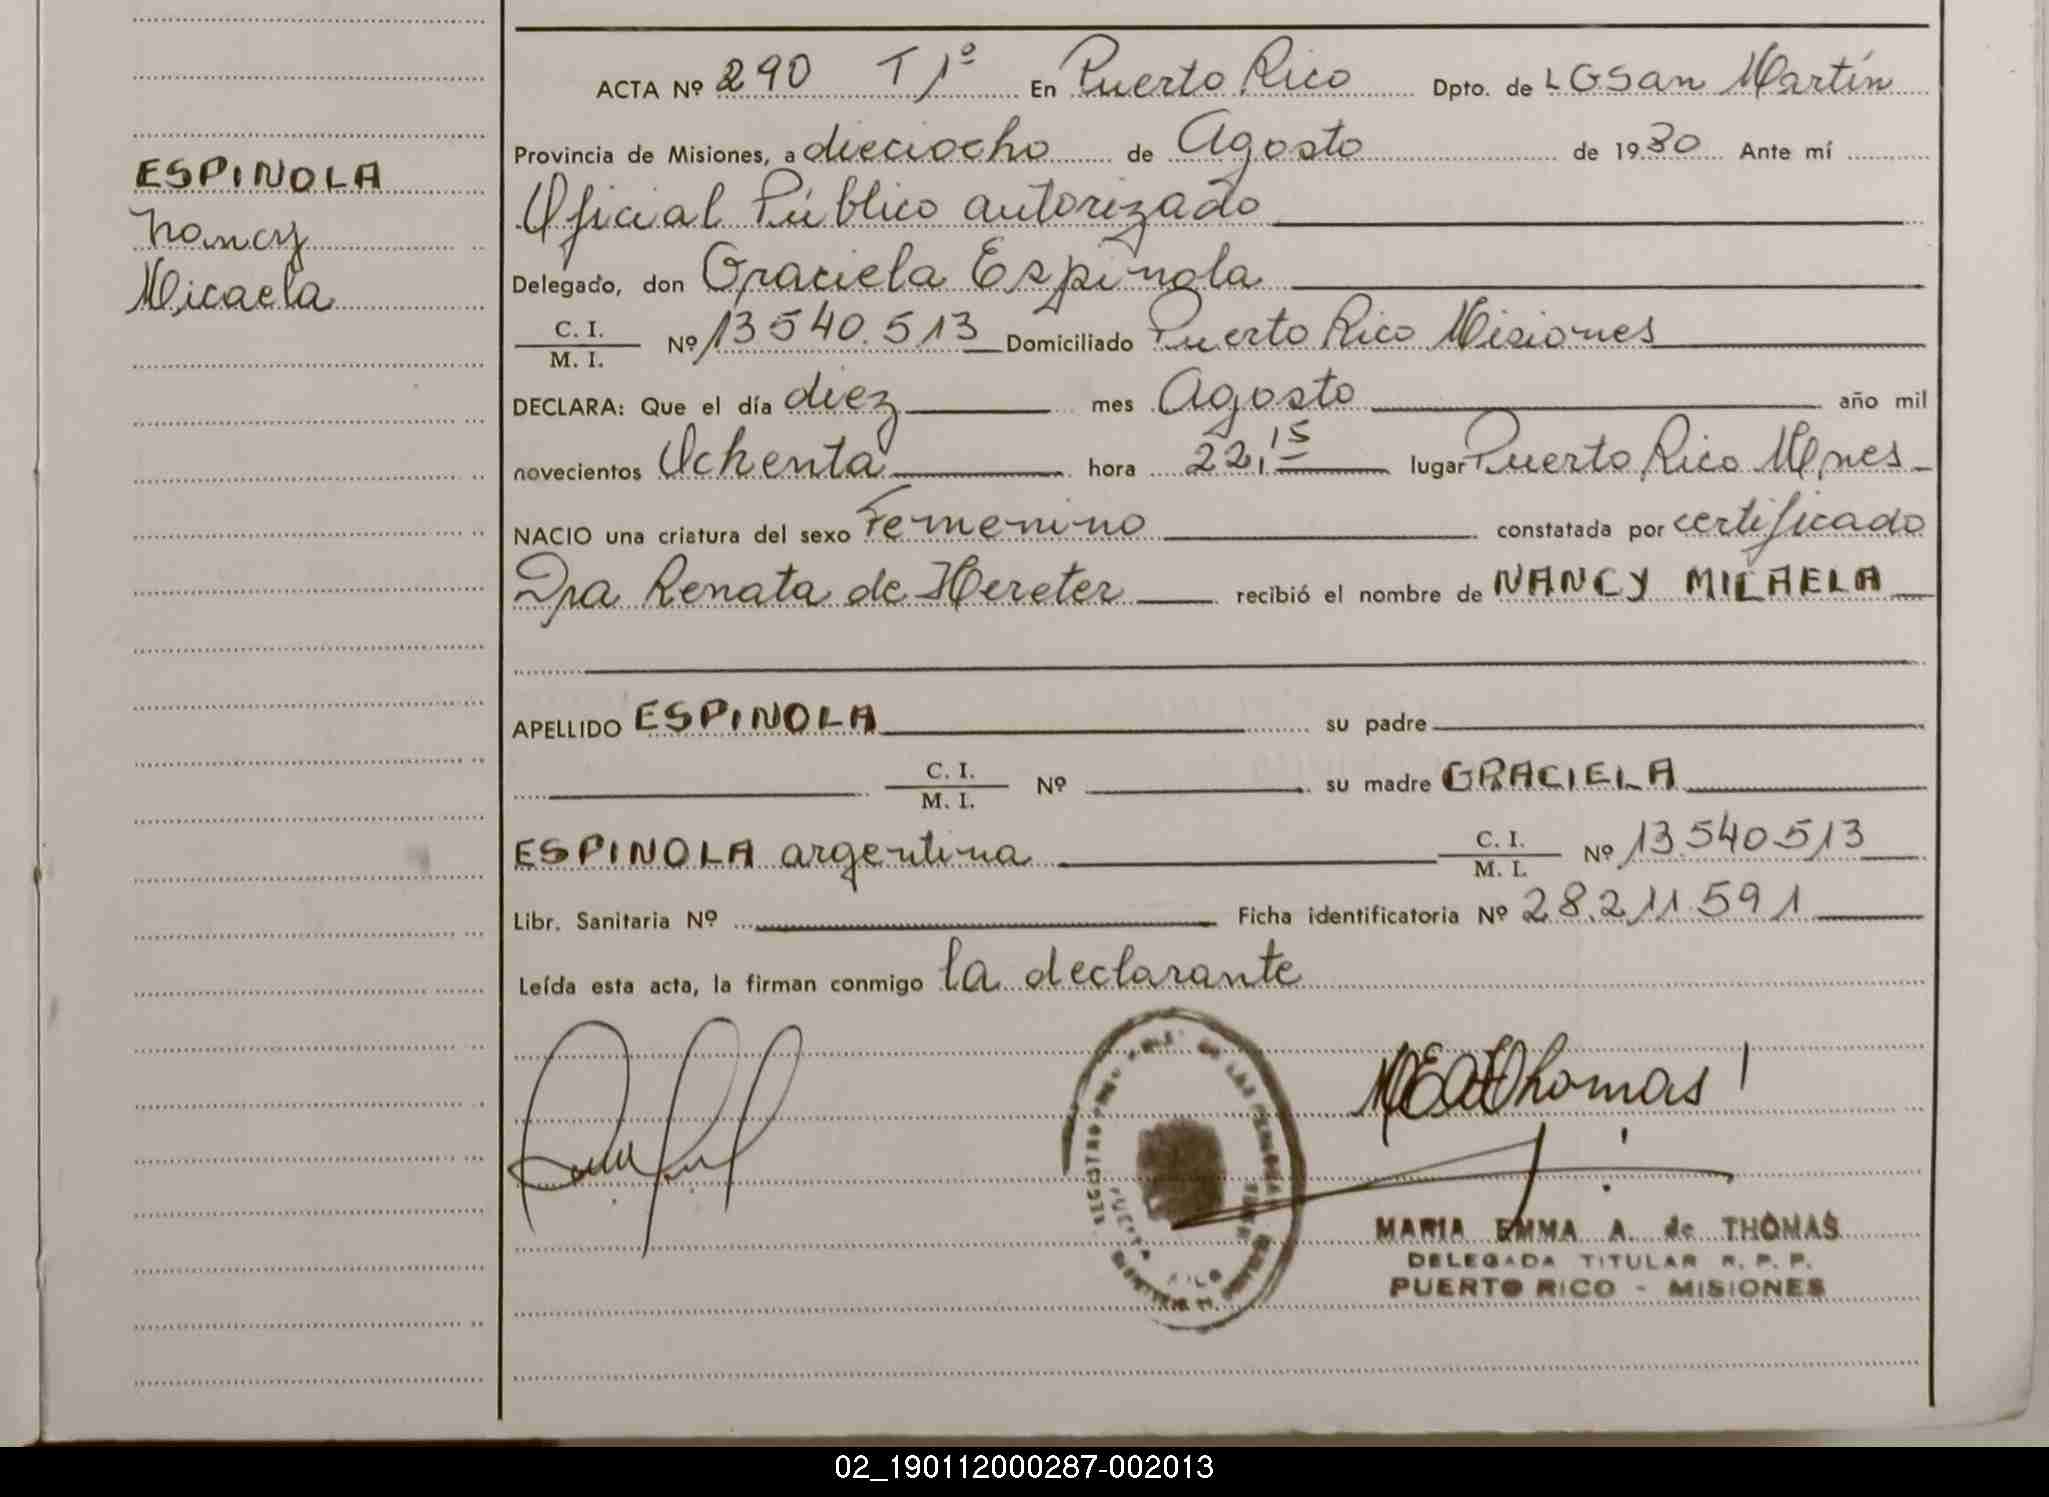 ACTA Nº 290 T 1º En Puerto Rico Dpto. de LGSan Martín
Provincia de Misiones, a dieciocho de Agosto de 1980 Ante mí
ESPINOLA
Oficial Público autorizado
Nancy
Delegado, don Graciela Espinola
Micaela
C. I.
M. I. Nº 13 540.513 Domiciliado Puerto Rico Misiones
DECLARA: Que el día diez mes Agosto año mil
novecientos Ochenta hora 22,15 lugar Puerto Rico Mnes
NACIO una criatura del sexo Femenino constatada por certificado
Dra Renata de Hereter recibió el nombre de NANCY MICAELA
APELLIDO ESPINOLA su padre
C. I.
M. I. Nº su madre GRACIELA
ESPINOLA argentina C. I.
M. I. Nº 13.540513
Libr. Sanitaria Nº Ficha identificatoria Nº 28.211.591
Leída esta acta, la firman conmigo la declarante
MEAThomas
MARIA EMMA A. de THOMAS
DELEGADA TITULAR R. P. P.
PUERTO RICO - MISIONES
02_190112000287-002013